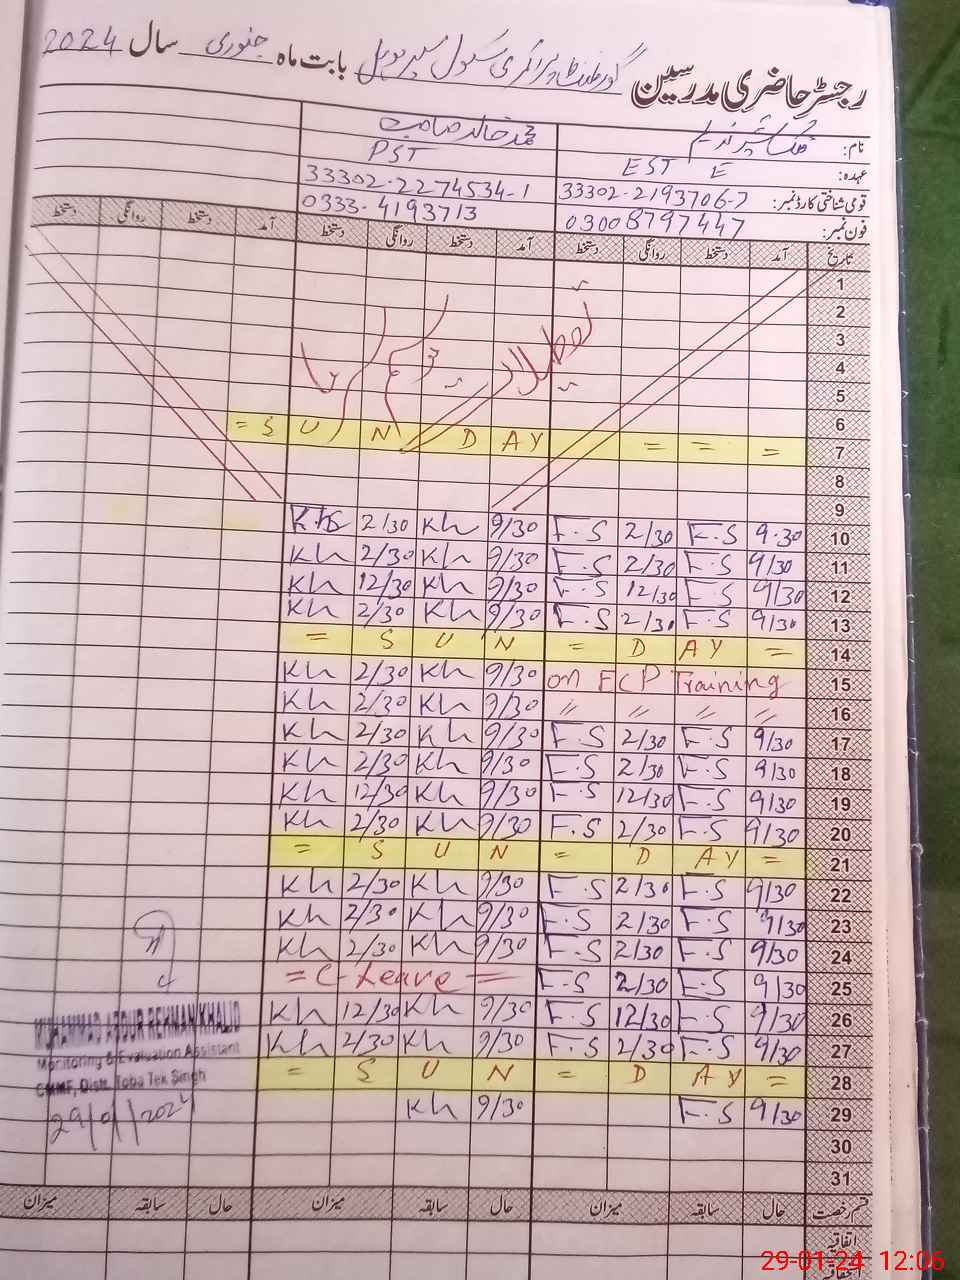 رجسٹر حاضری مدرسین گورنمنٹ پرائمری سکول بابت ماہ جنوری سال 2024
نام: محمد خالد صاحب
عہدہ: EST E PST
قومی شناختی کارڈ نمبر: 33302-2193706-7 33302-2274534-1
فون نمبر: 03008797447 0333-4193713
تاریخ آمد دستخط روانگی دستخط آمد دستخط روانگی دستخط آمد دستخط روانگی دستخط
1
2
3
4
5
6
7 = = = SUNDAY =
8
9
10 9.30 F.S 2/30 F.S 9/30 Kh 2/30 Khs
11 9/30 F.S 2/30 F.S 9/30 Kh 2/30 Kh
12 9/30 F.S 12/30 F.S 9/30 Kh 12/30 Kh
13 9/30 F.S 2/30 F.S 9/30 Kh 2/30 Kh
14 = SUN = DAY =
15 on ECP Training 9/30 Kh 2/30 Kh
16 〃 〃 〃 〃 9/30 Kh 2/30 Kh
17 9/30 F.S 2/30 F.S 9/30 Kh 2/30 Kh
18 9/30 F.S 2/30 F.S 9/30 Kh 2/30 Kh
19 9/30 F.S 12/30 F.S 9/30 Kh 12/30 Kh
20 9/30 F.S 2/30 F.S 9/30 Kh 2/30 Kh
21 = SUN = DAY =
22 9/30 F.S 2/30 F.S 9/30 Kh 2/30 Kh
23 9/30 F.S 2/30 F.S 9/30 Kh 2/30 Kh
24 9/30 F.S 2/30 F.S 9/30 Kh 2/30 Kh
25 9/30 F.S 2/30 F.S = C-Leave =
26 9/30 F.S 12/30 F.S 9/30 Kh 12/30 Kh
27 9/30 F.S 2/30 F.S 9/30 Kh 2/30 Kh
28 = SUN = DAY =
29 9/30 F.S 9/30 Kh
30
31
MUHAMMAD ABDUR REHMAN KHALID
Monitoring & Evaluation Assistant
CMMF, Distt. Toba Tek Singh
29/01/2024
قسم رخصت حال سابقہ میزان حال سابقہ میزان حال سابقہ میزان
اتفاقیہ
29-01-24 12:06